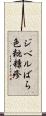 ジベルばら
色粃糠疹